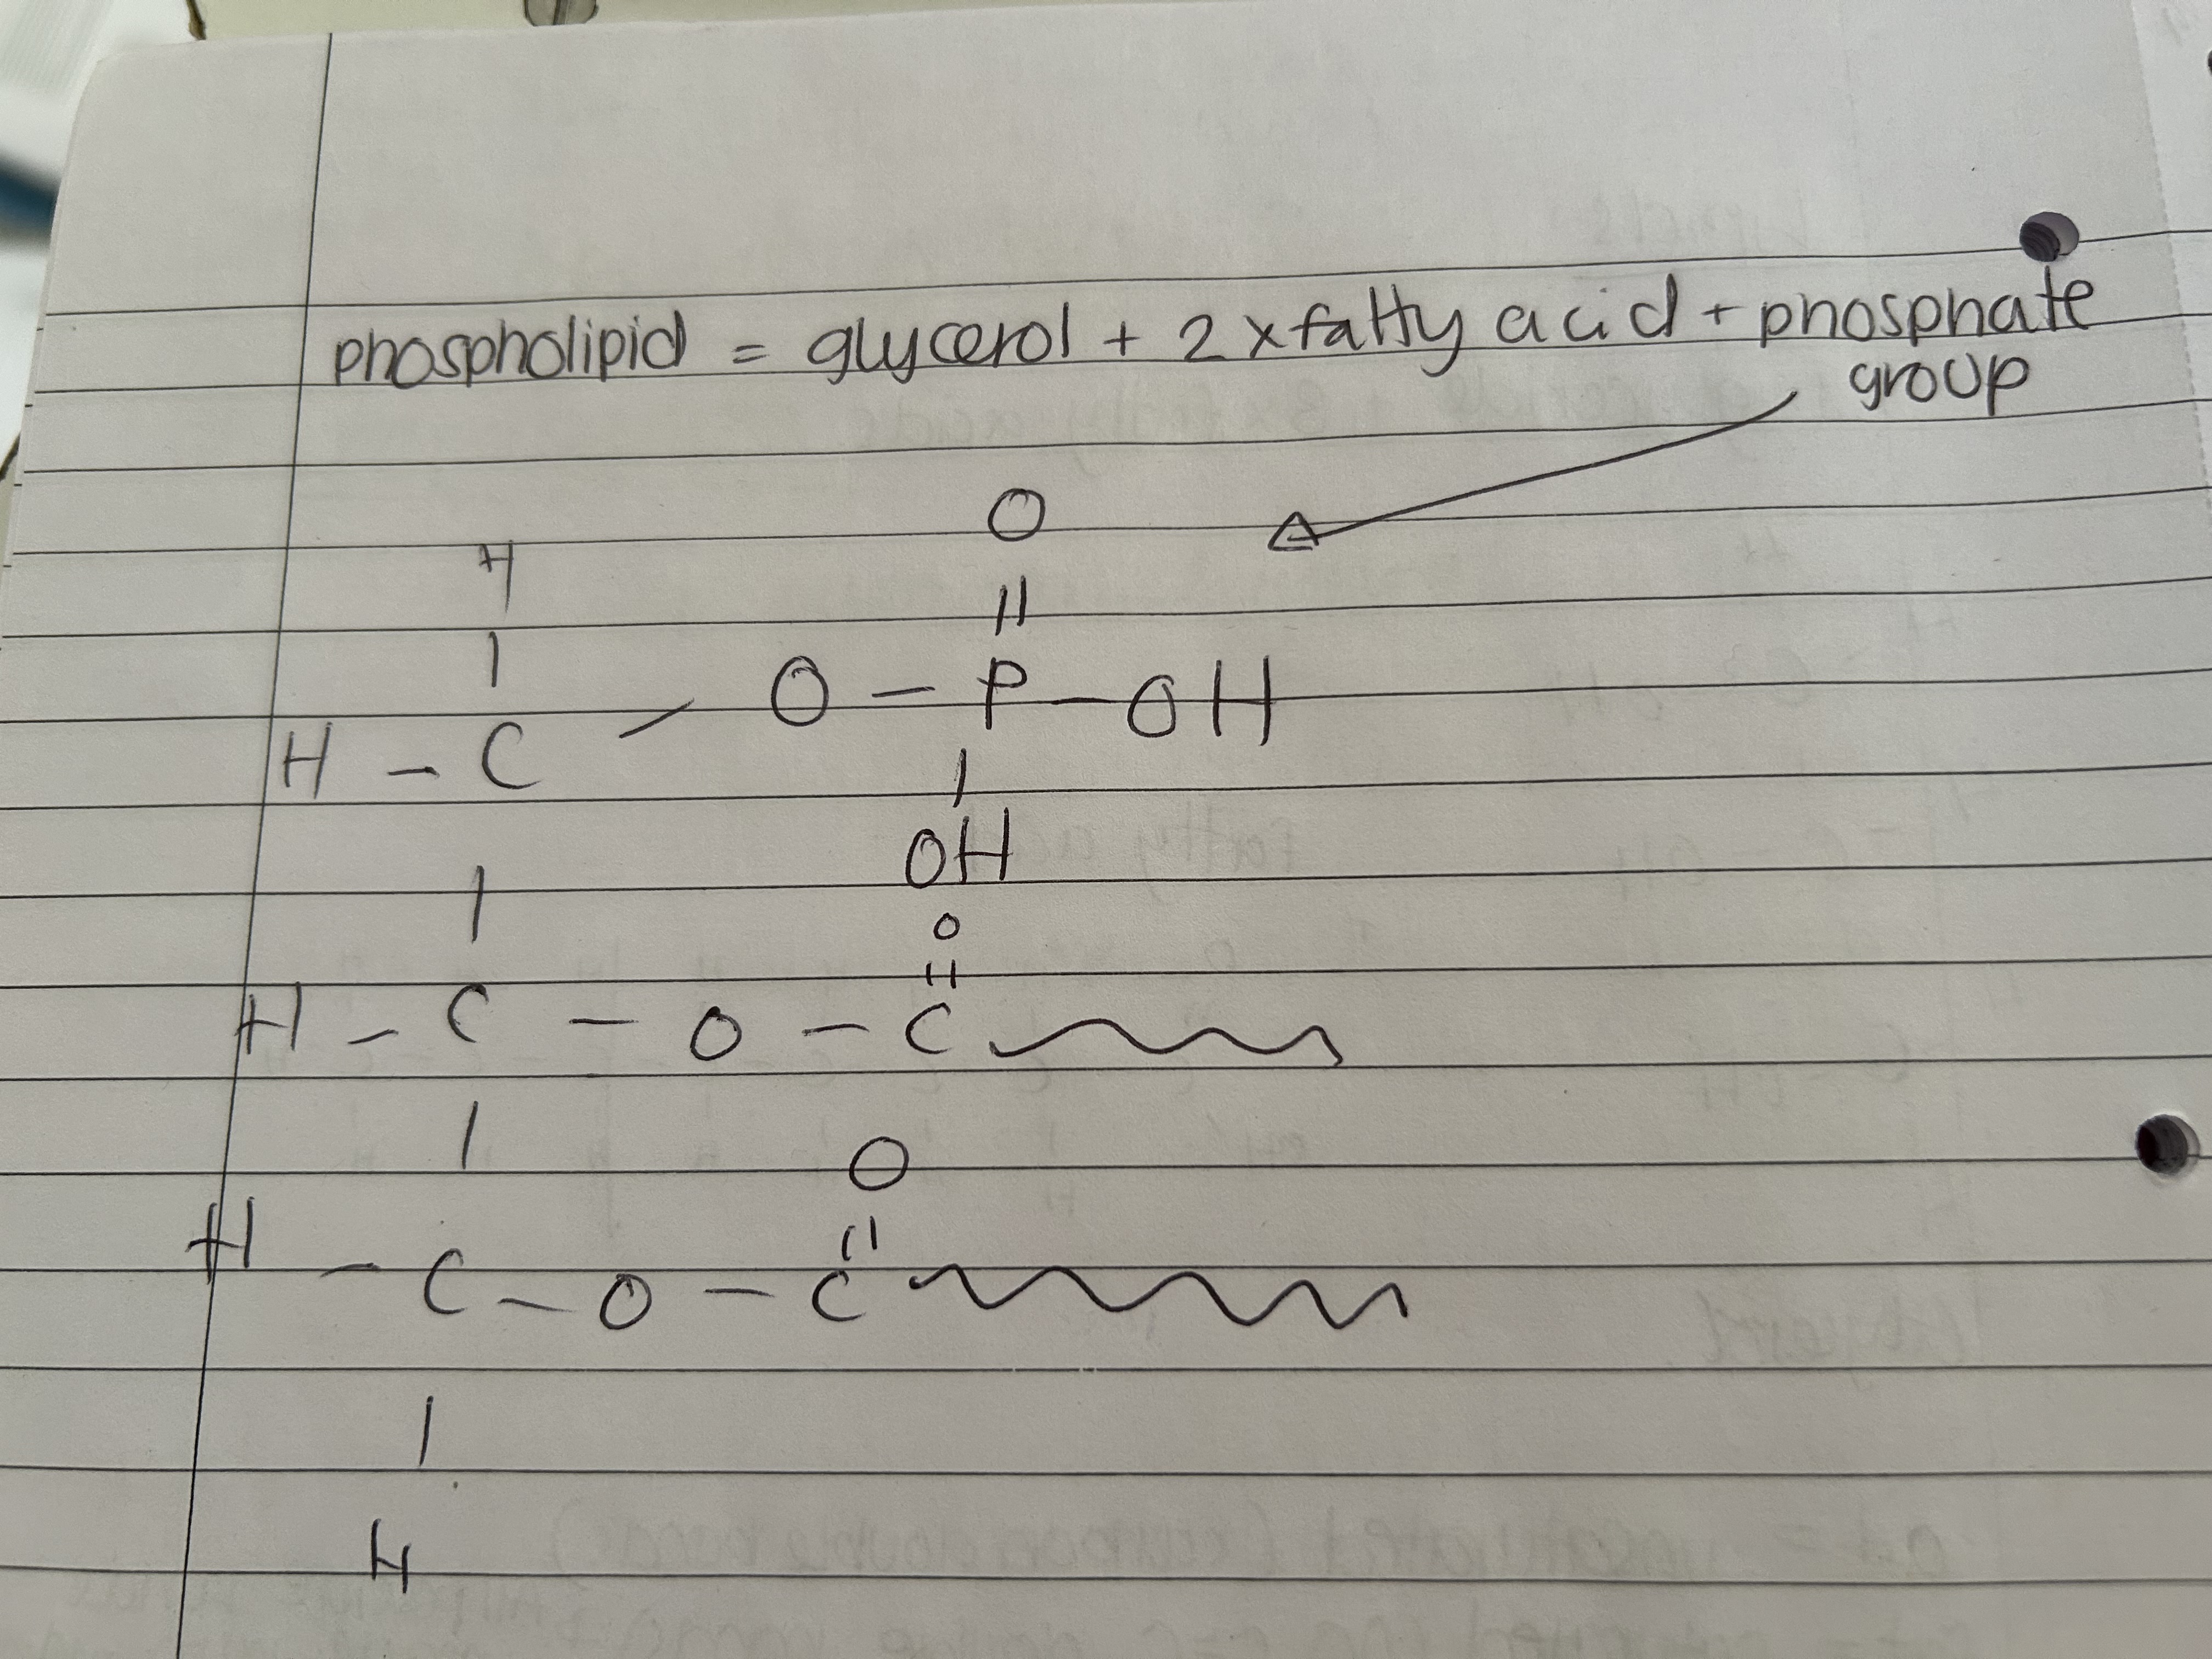 phospholipid = glycerol + 2 x fatty acid + phosphate
group
O
H
||
|
O – P – OH
H – C –
|
OH
|
O
||
H – C – O – C
|
O
||
H – C – O – C
|
H